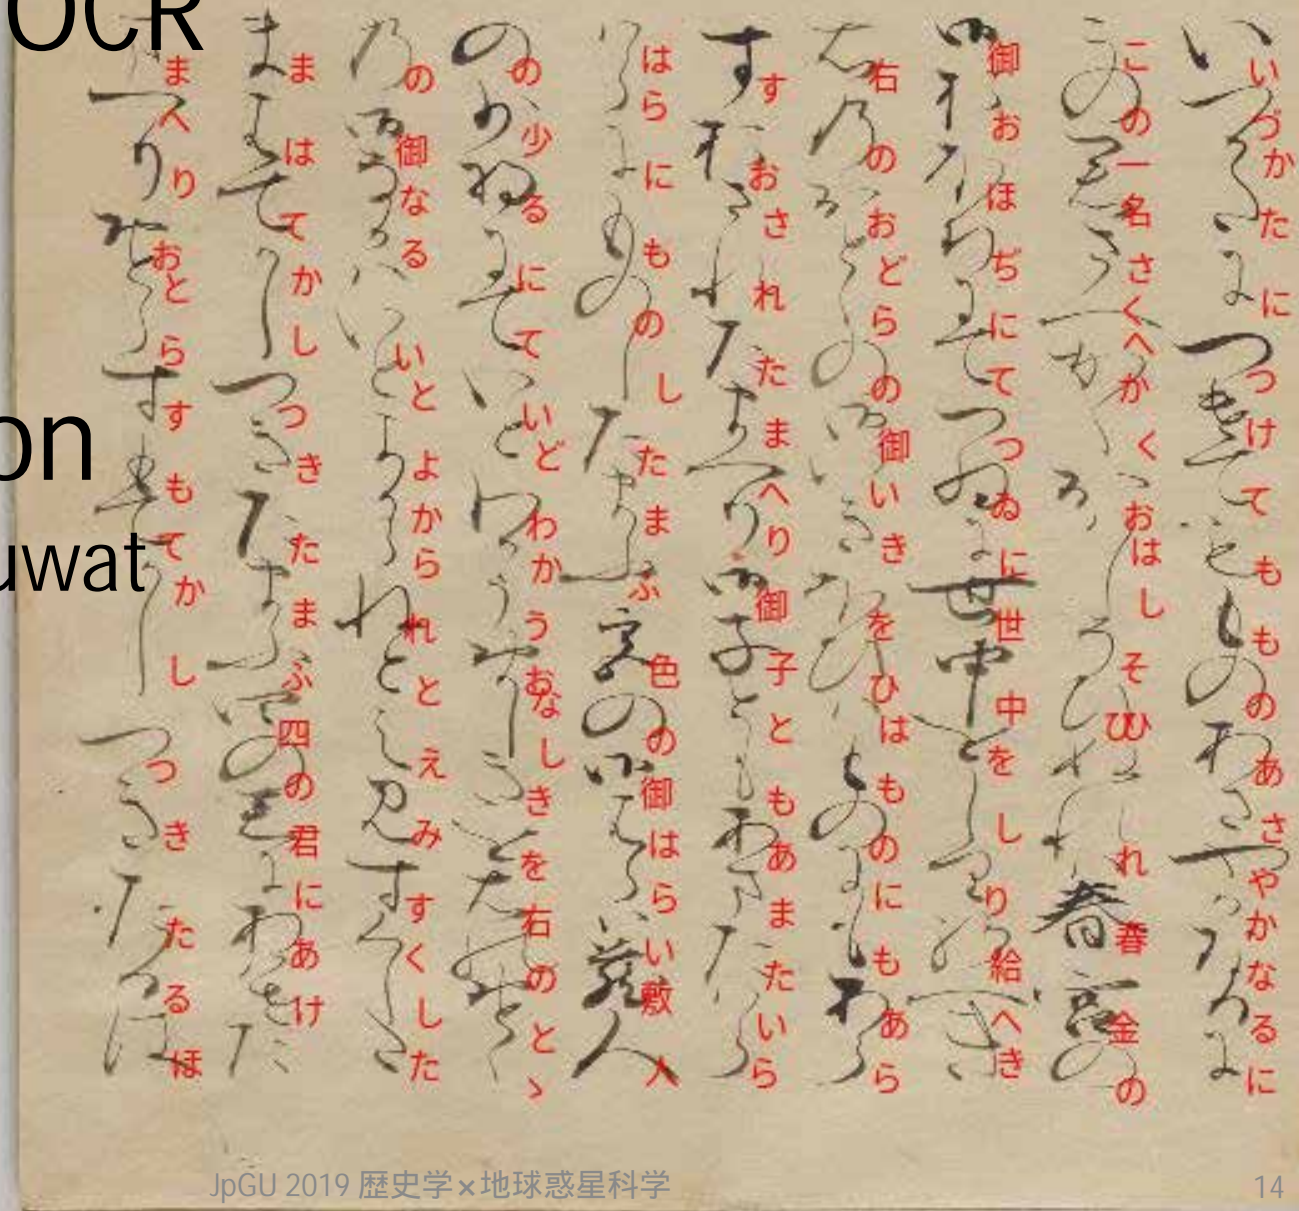 OCR
on
uwat
いづかたにつけてもものあさやかなるに
この一名さくへかくおはしそひひれ春金の
御おほぢにてつゐに世中をしり給へき
右のおどらの御いきをひはものにもあら
すおされたまへり御子ともあまたいら
はらにものしたまふ色の御はらい敷人
の少るにていどわかうおなしきを右のとゝ
の御なるいとよかられとえみすくした
まはてかしつきたまふ四の君にあけ
まへりおとらすもてかしつきたるほ
JpGU 2019 歴史学×地球惑星科学
14